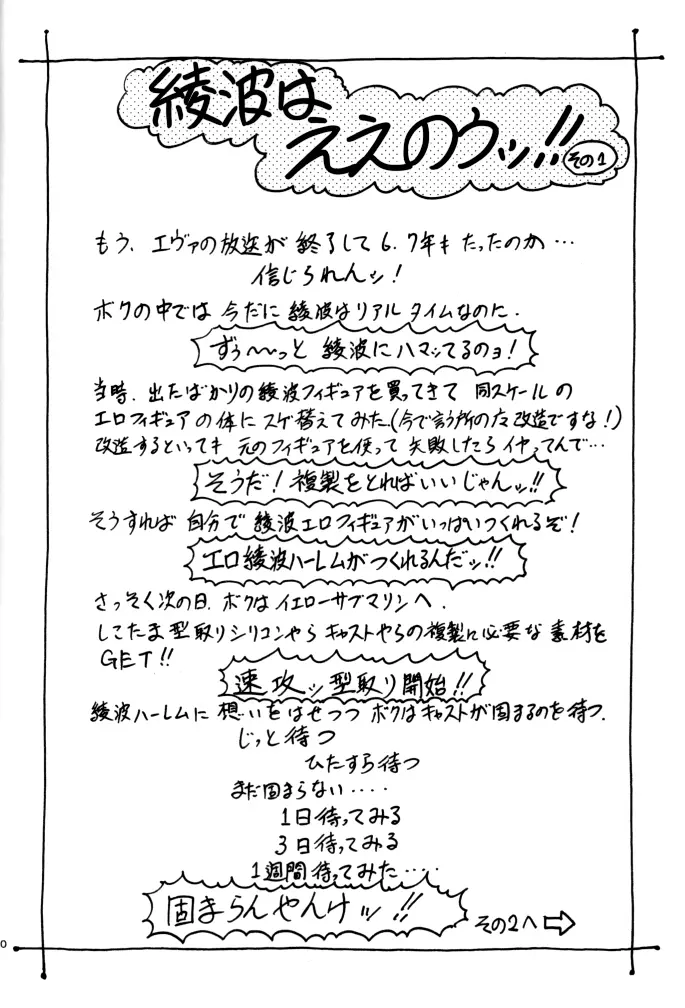 綾波は
ええのウッ!!
その1
もう、エヴァの放送が終了して6.7年もたったのか…
信じられんッ!
ボクの中では今だに綾波はリアルタイムなのに.
ずぅ〜〜っと 綾波にハマッてるのヨ!
当時.出たばかりの綾波フィギュアを買ってきて 同スケールの
エロフィギュアの体にスゲ替えてみた.(今で言う所の左改造ですな!)
改造するといっても 元のフィギュアを使って 失敗したらイヤってんで…
そうだ!複製をとればいいじゃんッ!!
そうすれば 自分で綾波エロフィギュアがいっぱいつくれるぞ!
エロ綾波ハーレムがつくれるんだッ!!
さっそく次の日.ボクはイエローサブマリンへ.
してたま型取りシリコンやらキャストやらの複製に必要な素材を
GET!!
速攻ッ型取り開始!!
綾波ハーレムに想いをはせつつ ボクはキャストが固まるのを待つ.
じっと待つ
ひたすら待つ
まだ固まらない‥‥
1日待ってみる
3日待ってみる
1週間待ってみた‥‥
固まらんやんけッ!!
その2へ⇨
0